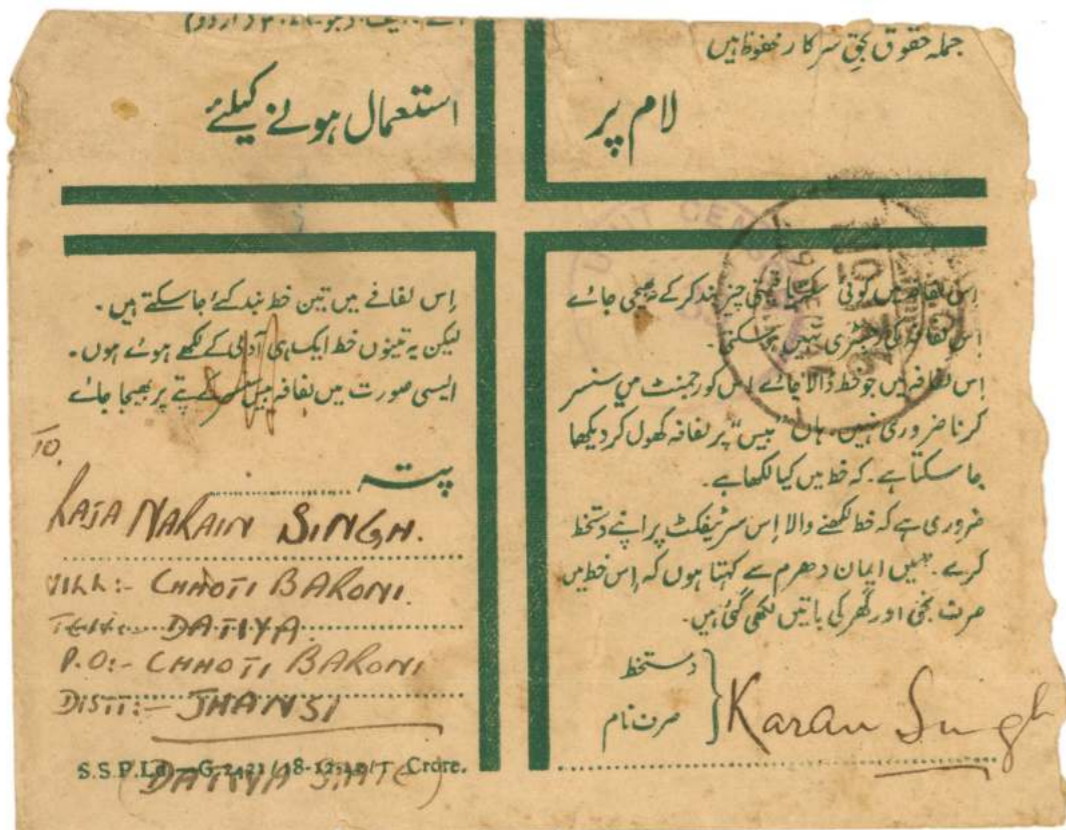 جملہ حقوق بحق سرکار محفوظ ہیں
لام پر
استعمال ہونے کیلئے
اِس لفافہ میں کوئی سکہ یا قیمتی چیز بند کرکے نہ بھیجی جائے
اِس لفافہ کی رجسٹری نہیں ہوسکتی۔
اِس لفافہ میں جو خط ڈالا جائے اس کو رجمنٹ میں سنسر
کرنا ضروری نہیں۔ ہاں "بیس" پر لفافہ کھول کر دیکھا
جا سکتا ہے۔ کہ خط میں کیا لکھا ہے۔
ضروری ہے کہ خط لکھنے والا اِس سرٹیفکٹ پر اپنے دستخط
کرے۔ "میں ایمان دھرم سے کہتا ہوں کہ اِس خط میں
صرف نجی اور گھر کی باتیں لکھی گئی ہیں۔
دستخط
صرف نام
Karan Singh
اِس لفافے میں تین خط بند کئے جاسکتے ہیں۔
لیکن یہ تینوں خط ایک ہی آدمی کے لکھے ہوئے ہوں۔
ایسی صورت میں لفافہ بیس کے پتے پر بھیجا جائے
پتہ
TO.
RAJA NARAIN SINGH.
VILL:- CHHOTI BARONI.
DATIYA.
P.O:- CHHOTI BARONI
DISTT:- JHANSI
(DATIYA STATE)
S.S.P.Ld.
Crore.
UNIT CENSOR